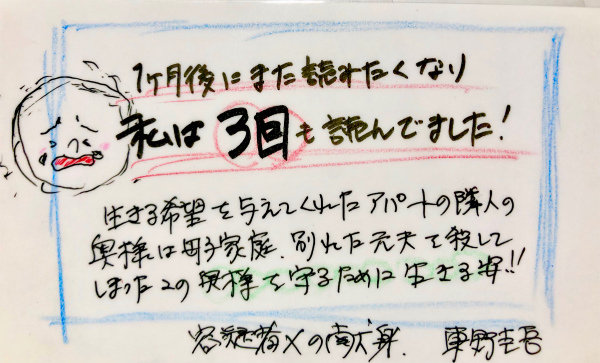 1ヶ月後にまた読みたくなり
私は3回も読んでました!
生きる希望を与えてくれたアパートの隣人の
奥様は母子家庭、別れた元夫を殺して
しまったこの奥様を守るために生きる姿!!
容疑者Xの献身、東野圭吾